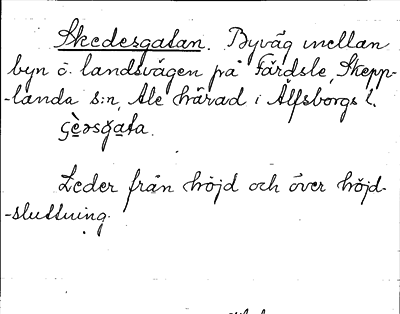 Skedesgatan. Byväg mellan
byn o. landsvägen på Färdsle, Skepp-
-landa s:n, Ale härad i Älfsborgs l.
Leder från höjd och över höjd-
-sluttning.